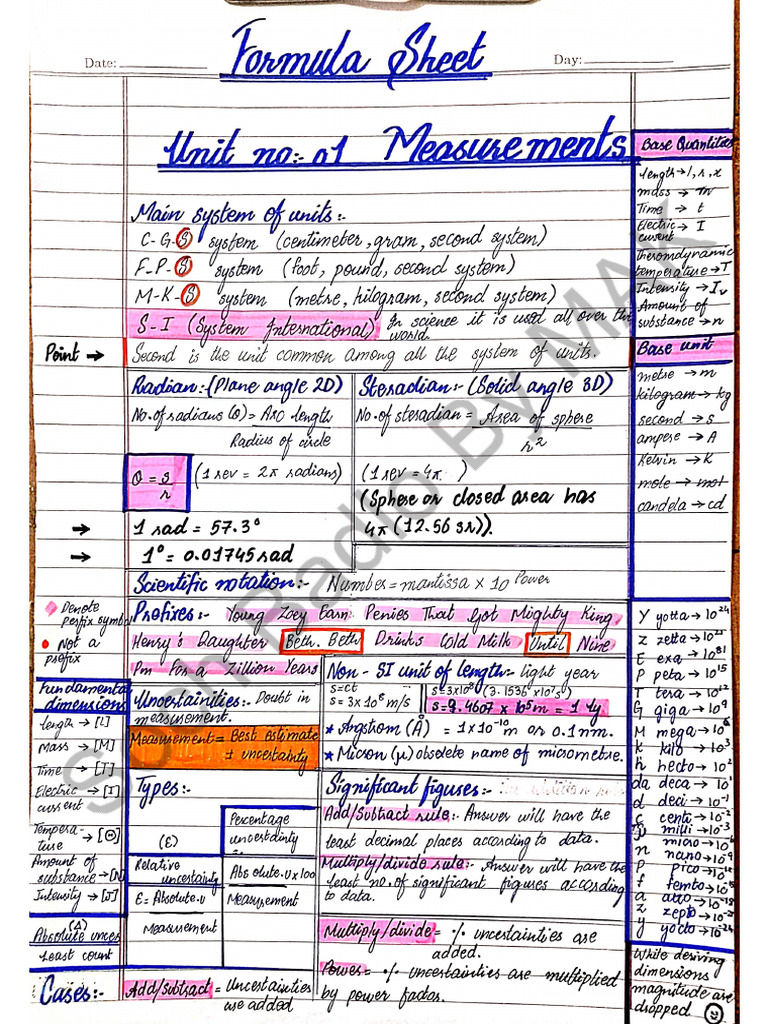 Date:
Day:
Formula Sheet
Unit no:- 01 Measurements
Main system of units:-
C-G-S system (centimeter, gram, second system)
F-P-S system (foot, pound, second system)
M-K-S system (metre, kilogram, second system)
S-I (System International) In science it is used all over the
world.
Point → Second is the unit common among all the system of units.
Radian:-(Plane angle 2D)
No. of radians (θ) = Arc length
Radius of circle
θ = s
r
(1 rev = 2π radians)
→ 1 rad = 57.3°
→ 1° = 0.01745 rad
Steradian:- (Solid angle 3D)
No. of steradian = Area of sphere
r²
(1 rev = 4π )
(Sphere or closed area has
4π (12.56 sr)).
Scientific notation:- Number = mantissa x 10 Power
Denote
perfix symbol
Not a
prefix
Prefixes:- Young Zoey Earn Penies That Got Mighty King
Henry's Daughter Beth. Beth Drinks Cold Milk Until Nine
Pm For a Zillion Years
Non - SI unit of length:- light year
s=ct
s = 3x10⁸ m/s
s=3x10⁸ (3.1536x10⁷s)
s=9.4607 x 10¹⁵m = 1 ly
* Angstrom (Å) = 1x10⁻¹⁰m or 0.1nm.
* Micron (μ) obsolete name of micrometre.
Uncertainities:- Doubt in
measurement.
Measurement = Best estimate
± uncertainity
Types:-
(ε)
Percentage
uncertainity
Relative
uncertainity
Absolute.u x100
Measurement
ε = Absolute.u
Measurement
Significant figures:-
Add/Subtract rule:- Answer will have the
least decimal places according to data.
Multiply/divide rule:- Answer will have the
least no. of significant figures according
to data.
Multiply/divide = % uncertainties are
added.
Power = % uncertainties are multiplied
by power factor.
Cases:- Add/subtract = Uncertainities
are added
Fundamental
dimensions
Length → [L]
Mass → [M]
Time → [T]
Electric → [I]
current
Tempera-
ture → [Θ]
Amount of
substance → [N]
Intensity → [J]
(Δ)
Absolute unces
Least count
Base Quantities
Length → l, r, x
mass → m
Time → t
Electric → I
current
Theromdynamic
temperature → T
Intensity → Iv
Amount of
substance → n
Base unit
metre → m
kilogram → kg
second → s
ampere → A
Kelvin → K
mole → mol
candela → cd
Y yotta → 10²⁴
Z zetta → 10²¹
E exa → 10¹⁸
P peta → 10¹⁵
T tera → 10¹²
G giga → 10⁹
M mega → 10⁶
K kilo → 10³
h hecto → 10²
da deca → 10¹
d deci → 10⁻¹
c centi → 10⁻²
milli → 10⁻³
micro → 10⁻⁶
n nano → 10⁻⁹
P pico → 10⁻¹²
f femto → 10⁻¹⁵
a atto → 10⁻¹⁸
z zepto → 10⁻²¹
y yocto → 10⁻²⁴
While deriving
dimensions
magnitude are
dropped
Radio By MAK